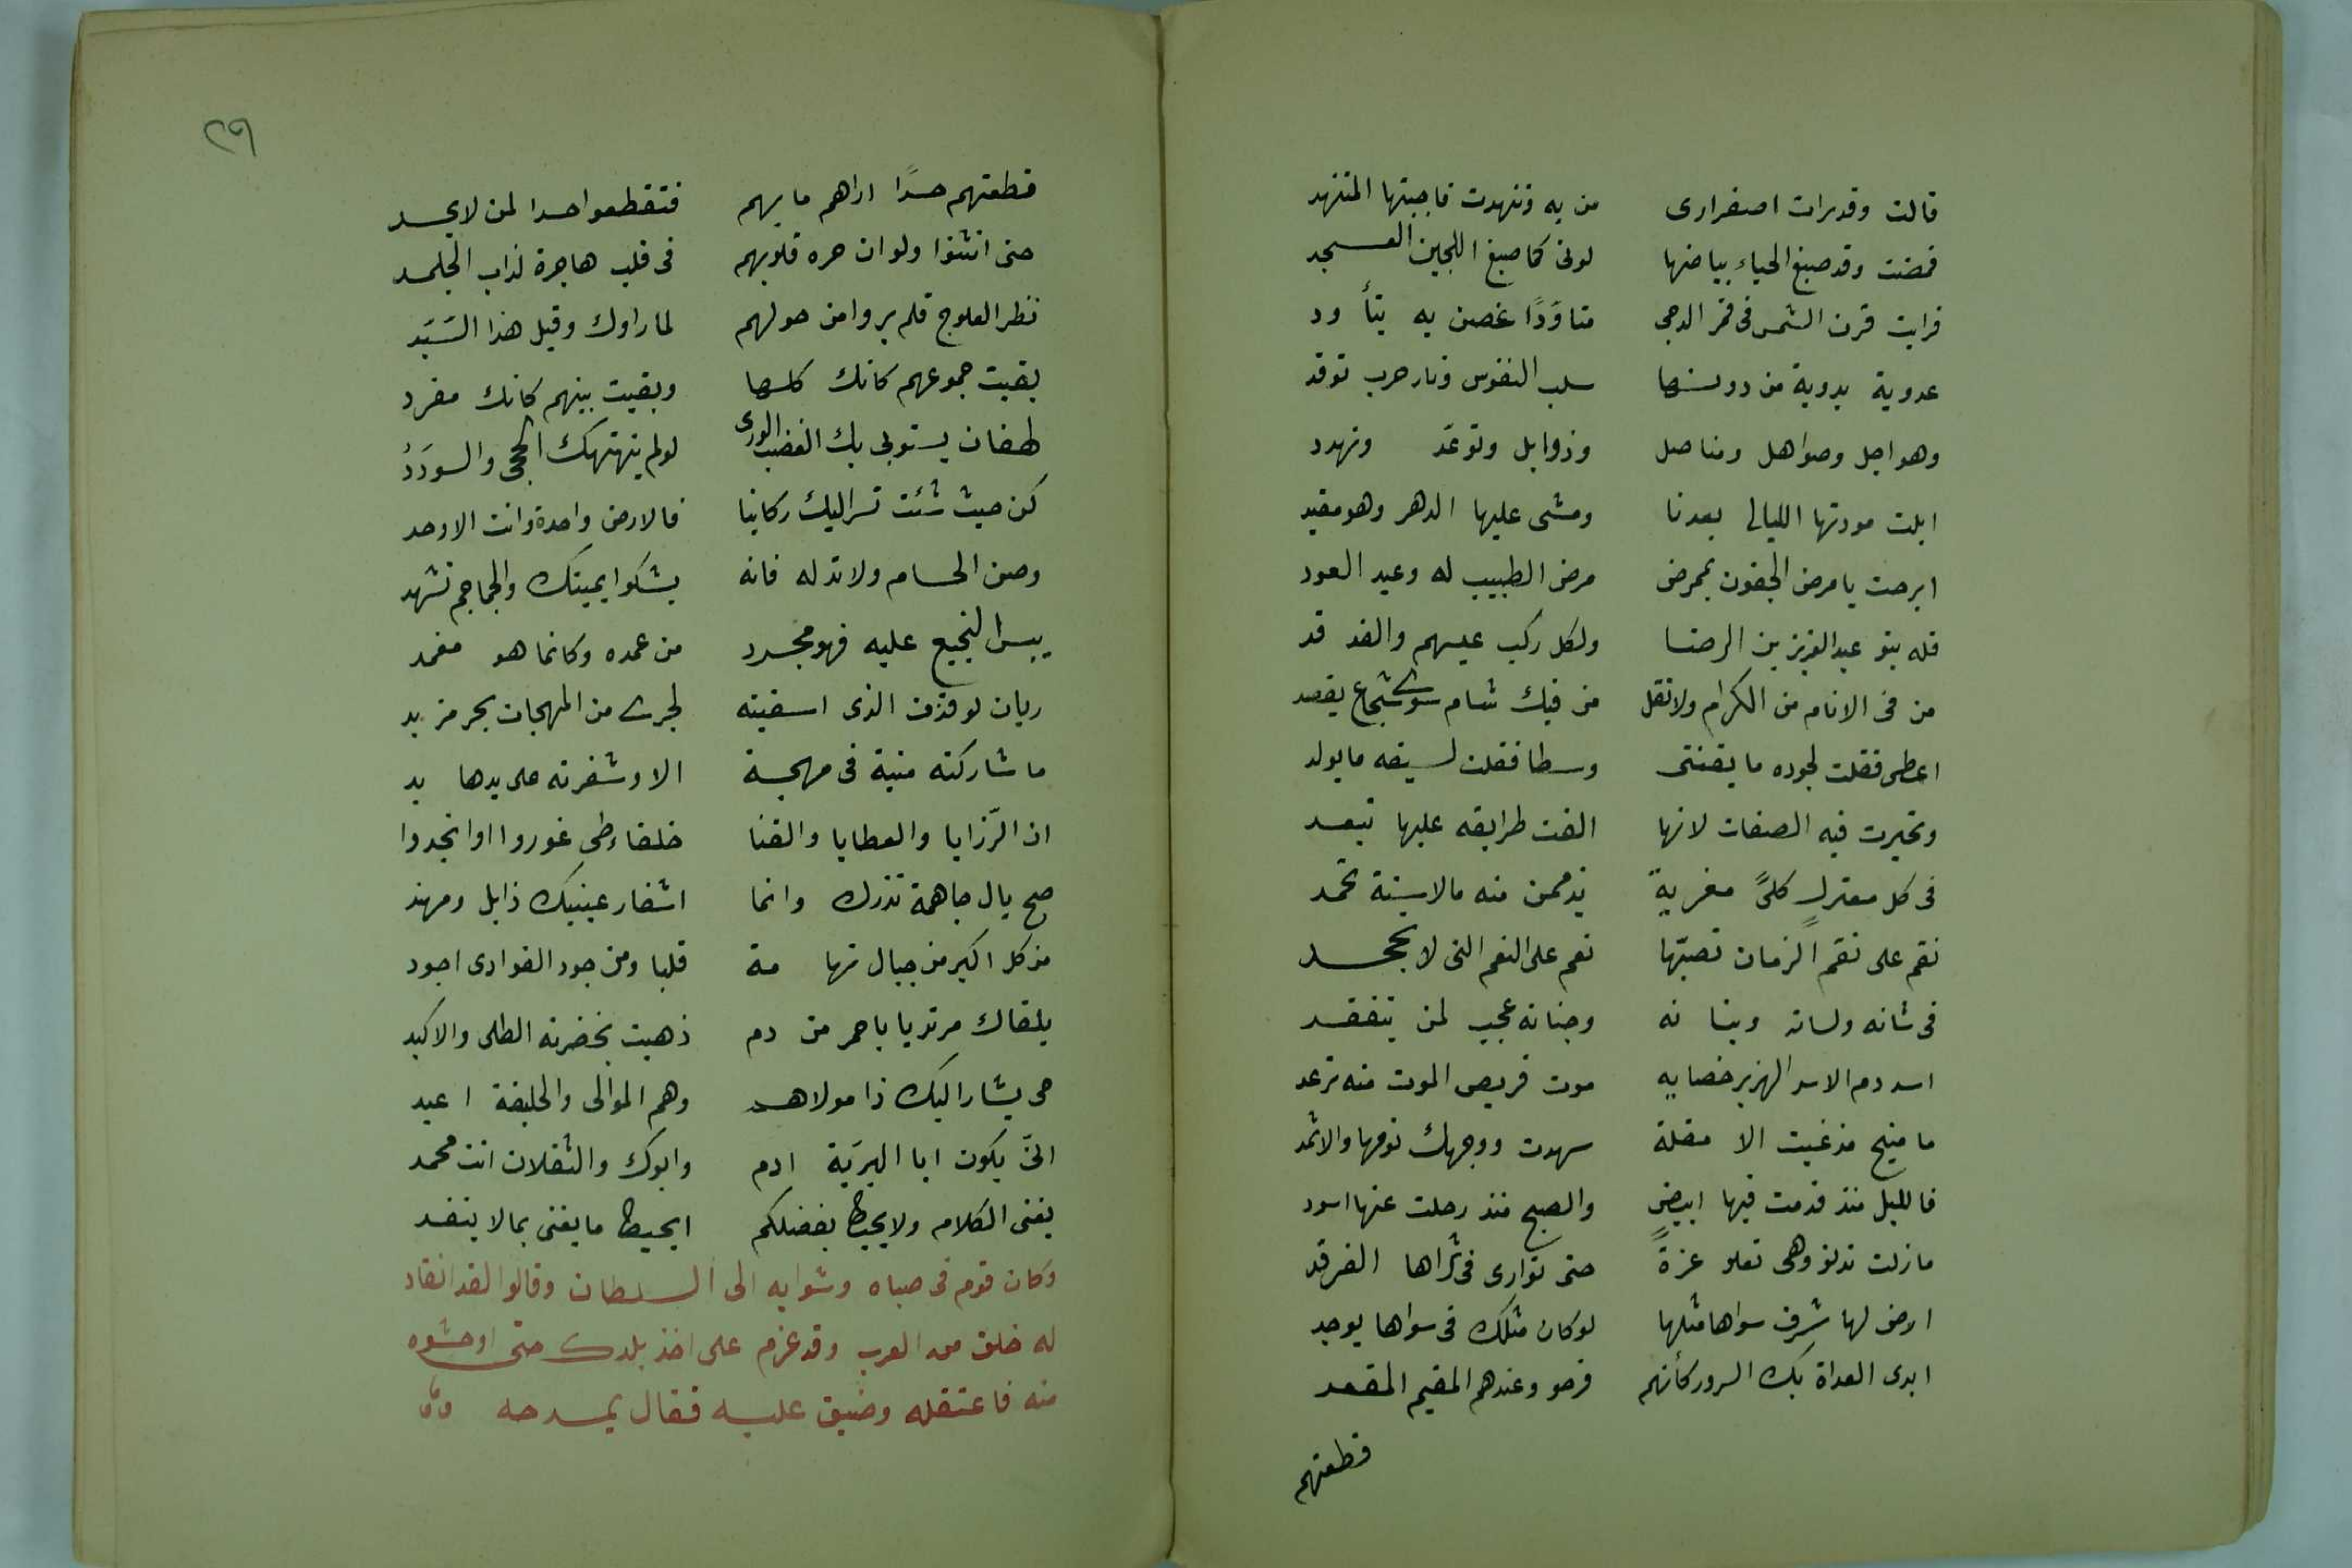 قالت وقد رات اصفرارى من به وتنهدت فاجبتها المتنهد
فمضت وقد صبغ الحياء بياضها لونى كما صبغ اللجين العسجد
فرايت قرن الشمس فى قمر الدجى متاوّدًا غصن به يتأود
عدوية بدوية من دونها سلب النفوس ونار حرب توقد
وهواجل وصواهل ومناصل وذوابل وتوعّد وتهدد
ابلت مودتها الليالى بعدنا ومشى عليها الدهر وهو مقيد
ابرحت يا مرض الجفون بممرض مرض الطبيب له وعيد العود
فله بنو عبد العزيز بن الرضا ولكل ركب عيسهم والفدفد
من فى الانام من الكرام ولا تقل من فيك شام سوى شجاع يقصد
اعطى فقلت لجوده ما يقتنى وسطا فقلت لسيفه ما يولد
وتحيرت فيه الصفات لانها الفت طرايقه عليها تبعد
فى كل معترك كلىً مفرية يذممن منه ما الاسنة تحمد
نقم على نقم الزمان تصبّها نعم على النعم التى لا تجحد
فى شانه ولسانه وبنا نه وجنانه عجب لمن يتفقد
اسد دم الاسد الهزبر خضابه موت فريص الموت منه ترعد
ما منبج مذ غبت الا مقلة سهدت ووجهك نومها والاثمد
فالليل منذ قدمت فيها ابيض والصبح منذ رحلت عنها اسود
ما زلت تدنو وهى تعلو عزةً حتى توارى فى ثراها الفرقد
ارض لها شرف سواها مثلها لو كان مثلك فى سواها يوجد
ابدى العداة بك السرور كأنهم فرحو وعندهم المقيم المقعد
قطعتهم
٢٩
قطعتهم حسدًا اراهم ما بهم فتقطعوا حسدا لمن لا يحسد
حتى انثنوا ولو ان حره قلوبهم فى قلب هاجرة لذاب الجلمد
نظر العلوج فلم يروا من حولهم لما راوك وقيل هذا السَيّد
بقيت جموعهم كانك كلها وبقيت بينهم كانك مفرد
لهفان يستوبى بك الغضب الورى لو لم ينهنهك الحجى والسودَدُ
كن حيث شئت تسر اليك ركابنا فالارض واحدة وانت الاوحد
وصن الحسام ولا تذله فانه يشكوا يمينك والجماجم تشهد
يبس النجيع عليه فهو مجرد من عمده وكانما هو مغمد
ريان لو قذف الذى اسقيته لجرى من المهجات بحر مزبد
ما شاركته منية فى مهجة الا وشفرته على يدها يد
ان الرّزايا والعطايا والقنا خلفاء طى غوروا او انجدوا
صح يال جاهمة تذرك وانما اشفار عينيك ذابل ومهند
من كل اكبر من جبال تها مة قلبا ومن جود الغوادى اجود
يلقاك مرتديا باحمر من دم ذهبت بخضرته الطلى والاكبد
حى يشار اليك ذا مولاهم وهم الموالى والخليقة اعبد
انّى يكون ابا البريّة ادم وابوك والثقلان انت محمد
يفنى الكلام ولا يحيط بفضلكم ايحيط ما يفنى بما لا ينفد
وكان قوم فى صباه وشوا به الى السلطان وقالوا لقد انقاد
له خلق من العرب وقد عزم على اخذ بلدك حتى اوحشوه
منه فاعتقله وضيق عليه فقال يمدحه